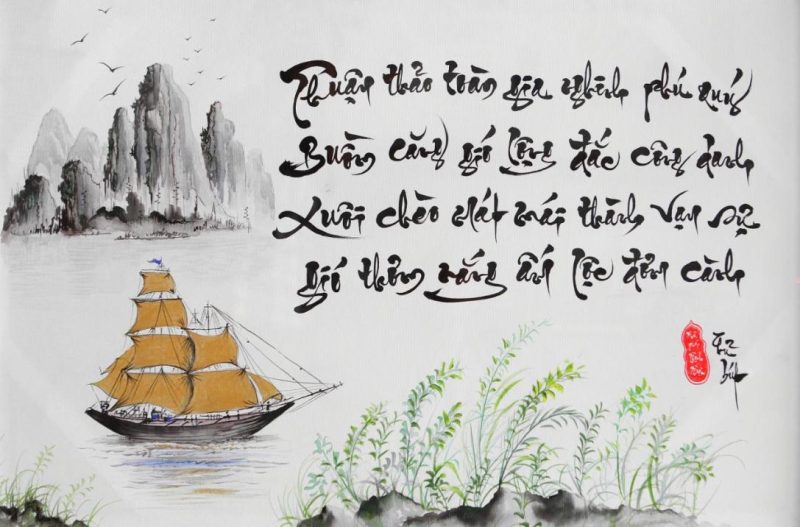 Thuận thảo toàn gia nghinh phú quý
Buồm căng gió lộng đắc công danh
Xuôi chèo mát mái thành vạn sự
gió thơm nắng ấm lộc đơm cành
bút